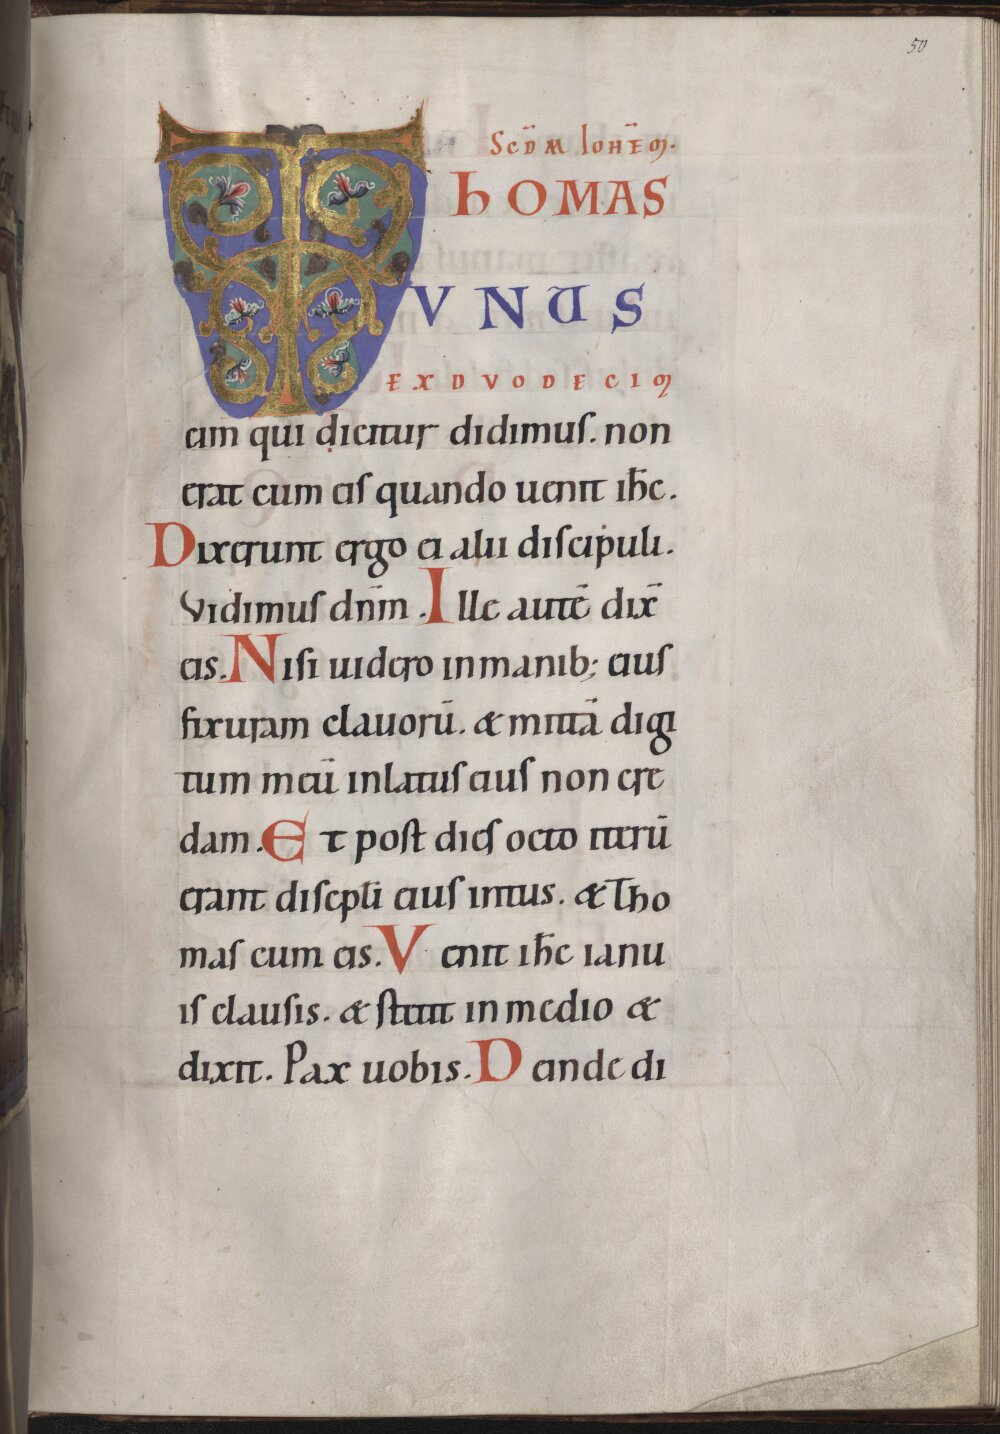 50
Scd̄m Ioh̄em.
THOMAS
VNUS
EXDVODECIM
cim qui dicitur didimus. non
erat cum eis quando uenit ihc̄.
Dixerunt ergo ei alii discipuli.
Vidimus dn̄m. Ille autē dix̄
eis. Nisi uidero in manib; eius
fixuram clauorū. & mittā digi
tum meū in latus eius non cre
dam. Et post dies octo iterū
erant discpl̄i eius intus. & Tho
mas cum eis. Venit ihc̄ ianu
is clausis. & stetit in medio &
dixit. Pax uobis. Deinde di